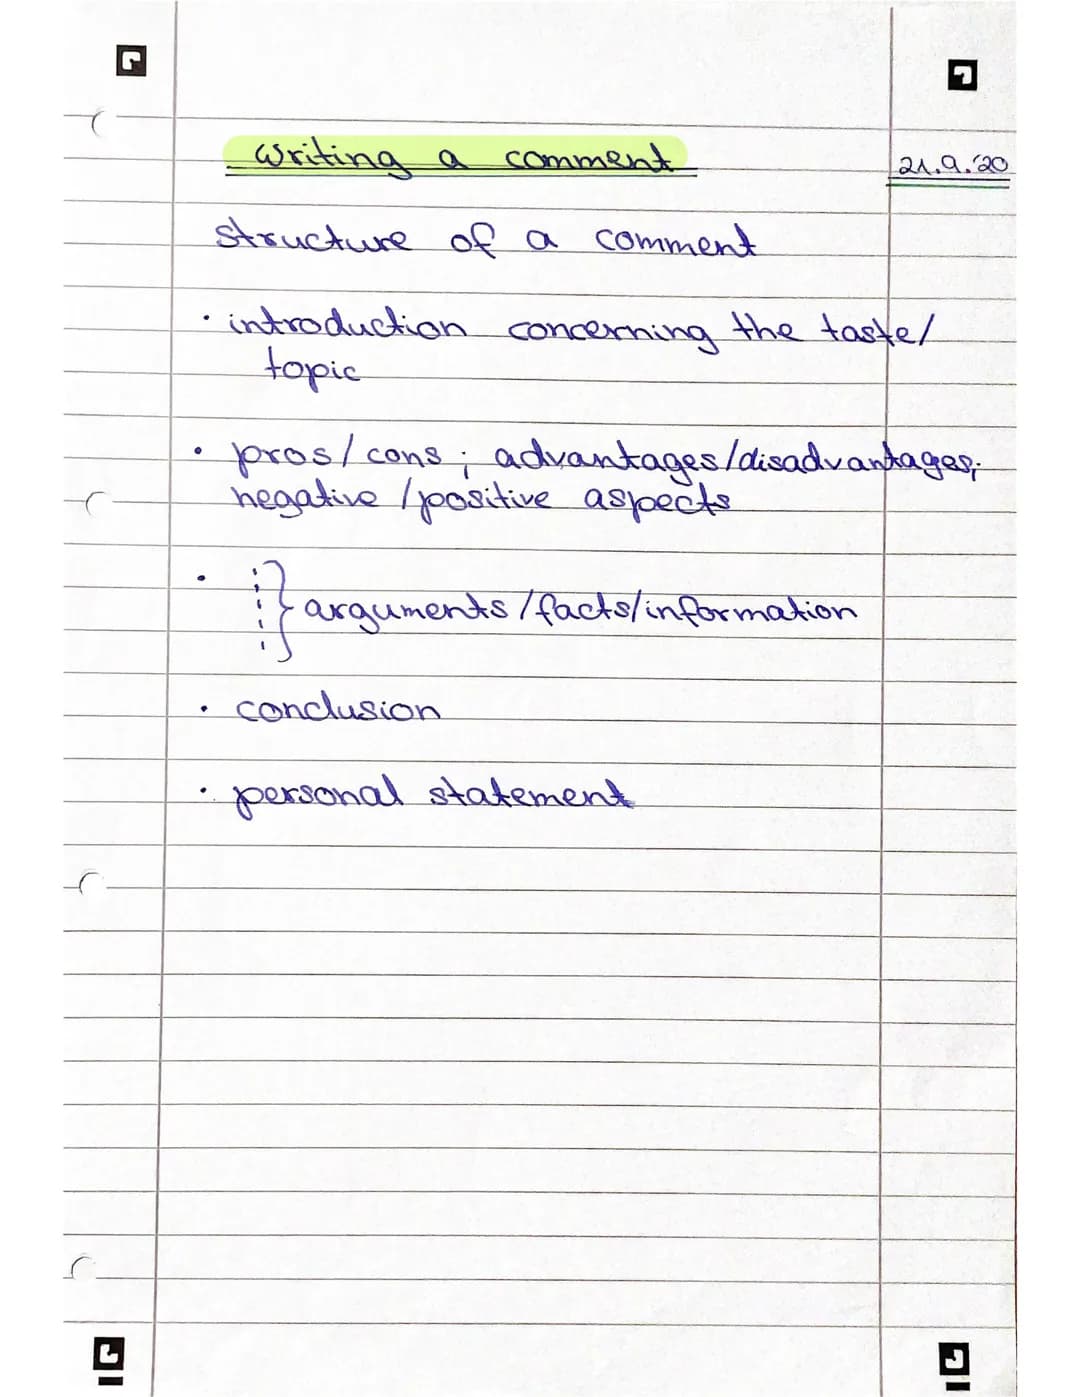 Writing a comment
21.9.'20
structure of a comment
· introduction concerning the taste/
topic
· pros/cons; advantages/disadvantages;
negative/positive aspects
· } arguments/facts/information
· conclusion
· personal statement